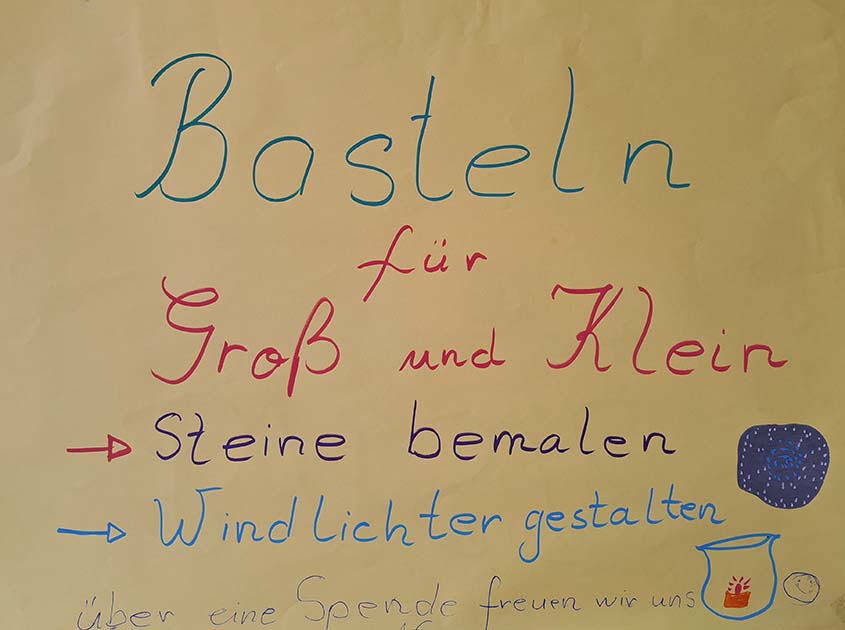 Basteln
für
Groß und Klein
→ Steine bemalen
→ Windlichter gestalten
über eine Spende freuen wir uns